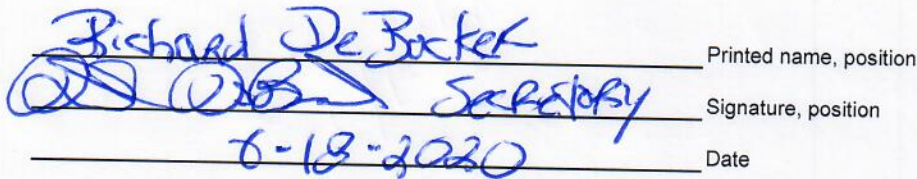 Richard De Backer Printed name, position
Secretary Signature, position
6-18-2020 Date